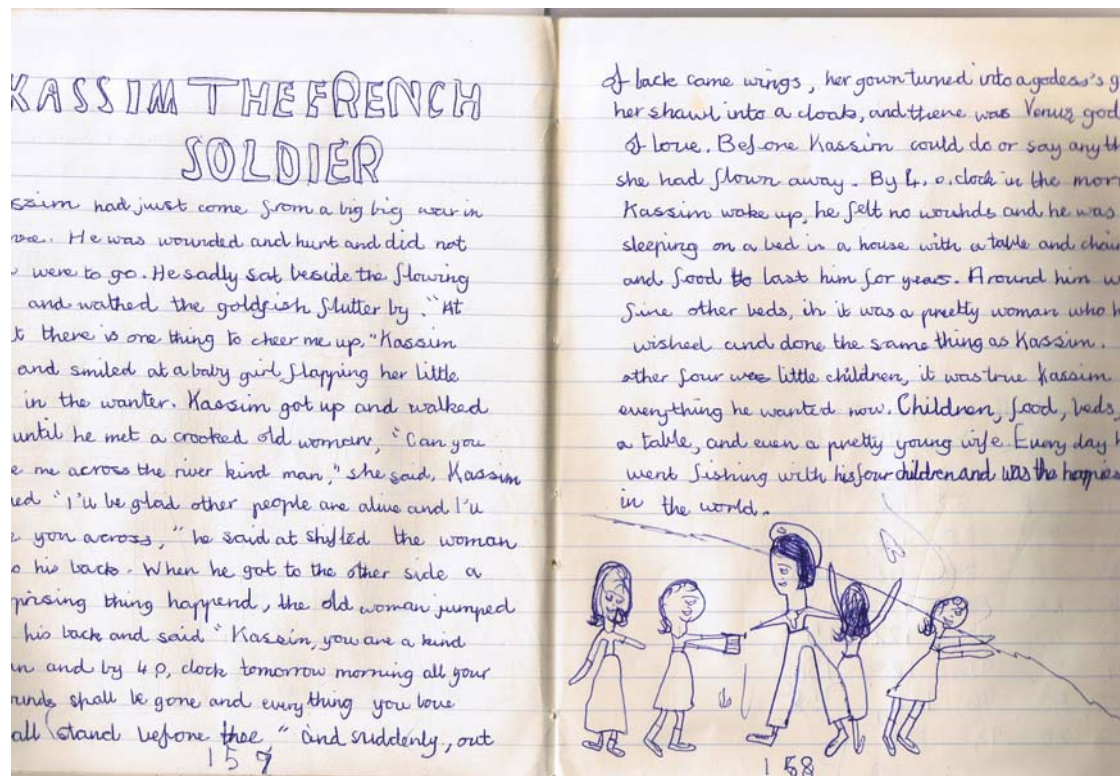 KASSIM THE FRENCH
SOLDIER
ssim had just come from a big big war in
. He was wounded and hurt and did not
were to go. He sadly sat beside the flowing
and wathed the goldfish flutter by. "At
t there is one thing to cheer me up," Kassim
and smiled at a baby girl flapping her little
in the wanter. Kassim got up and walked
until he met a crooked old woman, "Can you
e me across the river kind man," she said, Kassim
ed "I'll be glad other people are alive and I'll
you across," he said at shifted the woman
o his back. When he got to the other side a
prising thing happend, the old woman jumped
his back and said "Kassin, you are a kind
an and by 4 o, clock tomorrow morning all your
unds shall be gone and everything you love
all (stand before thee" and suddenly, out
157
of back came wings, her gown tuned into a godess's g
her shawl into a cloak, and there was Venus god
of love. Before Kassim could do or say anyth
she had flown away. By 4. o. clock in the morn
Kassim woke up, he felt no wounds and he was
sleeping on a bed in a house with a table and chai
and food to last him for years. Around him w
five other beds, in it was a preetty woman who h
wished and done the same thing as Kassim.
other four were little children, it was true Kassim
everything he wanted now. Children, food, beds,
a table, and even a pretty young wife. Every day h
went fishing with his four children and was the happies
in the world.
158